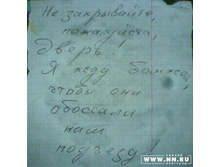 Не закрывайте,
пожалуйста,
дверь!
Я жду бомжей,
чтобы они
обоссали
наш
подъезд!
WWW.NN.RU